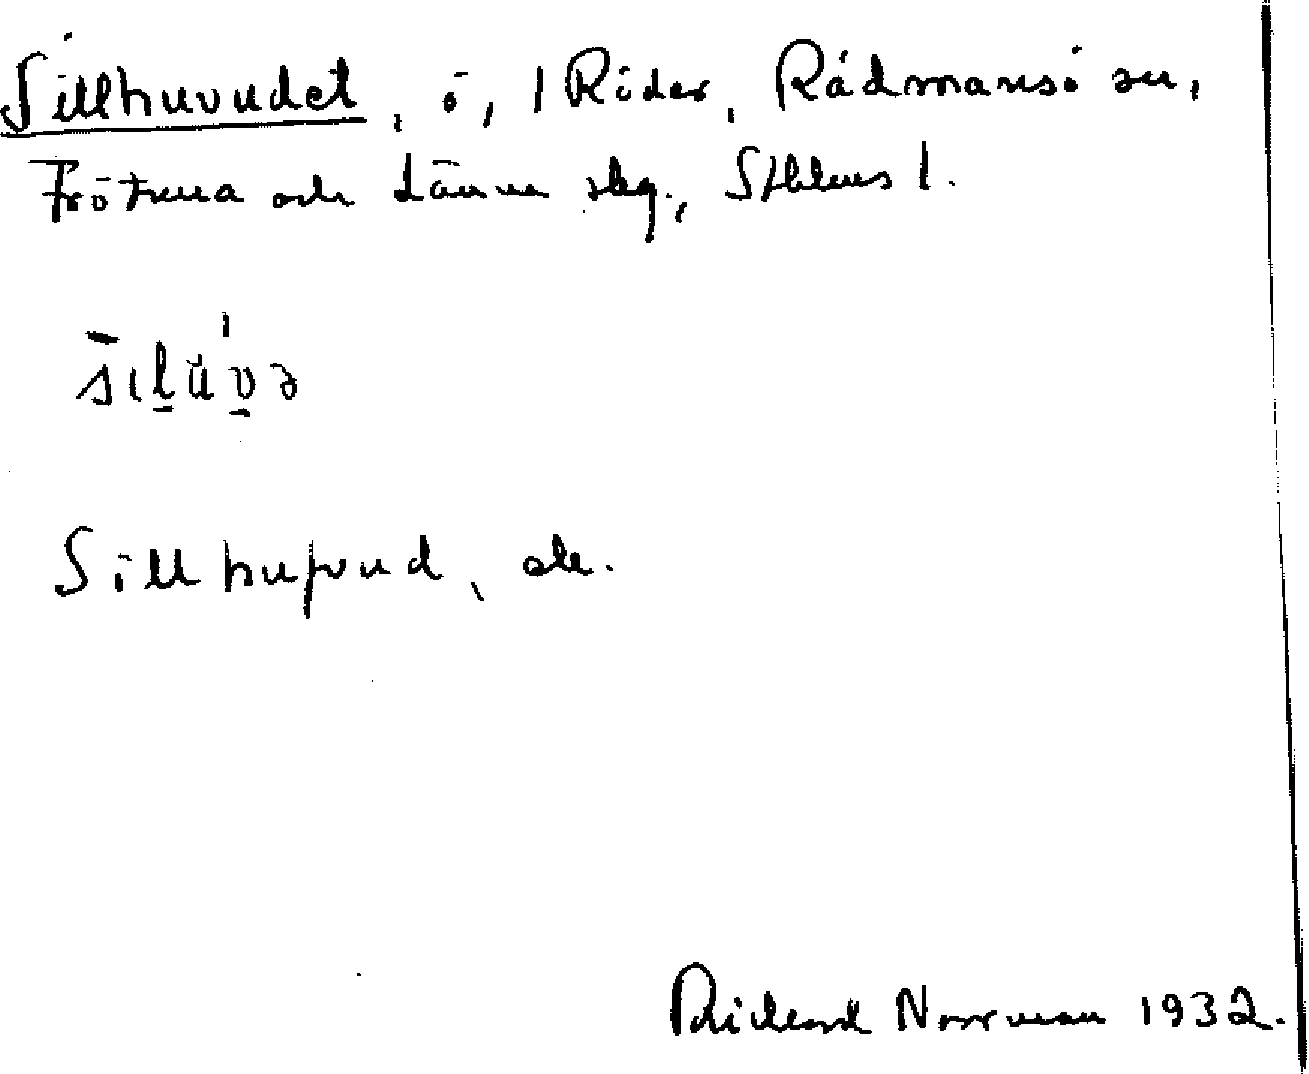 Sillhuvudet, ö, 1 Röder, Rådmansö sn,
Frötuna och Länna skg., Sthlms l.
Sillhufvud, ek.
Rickard Norrman 1932.